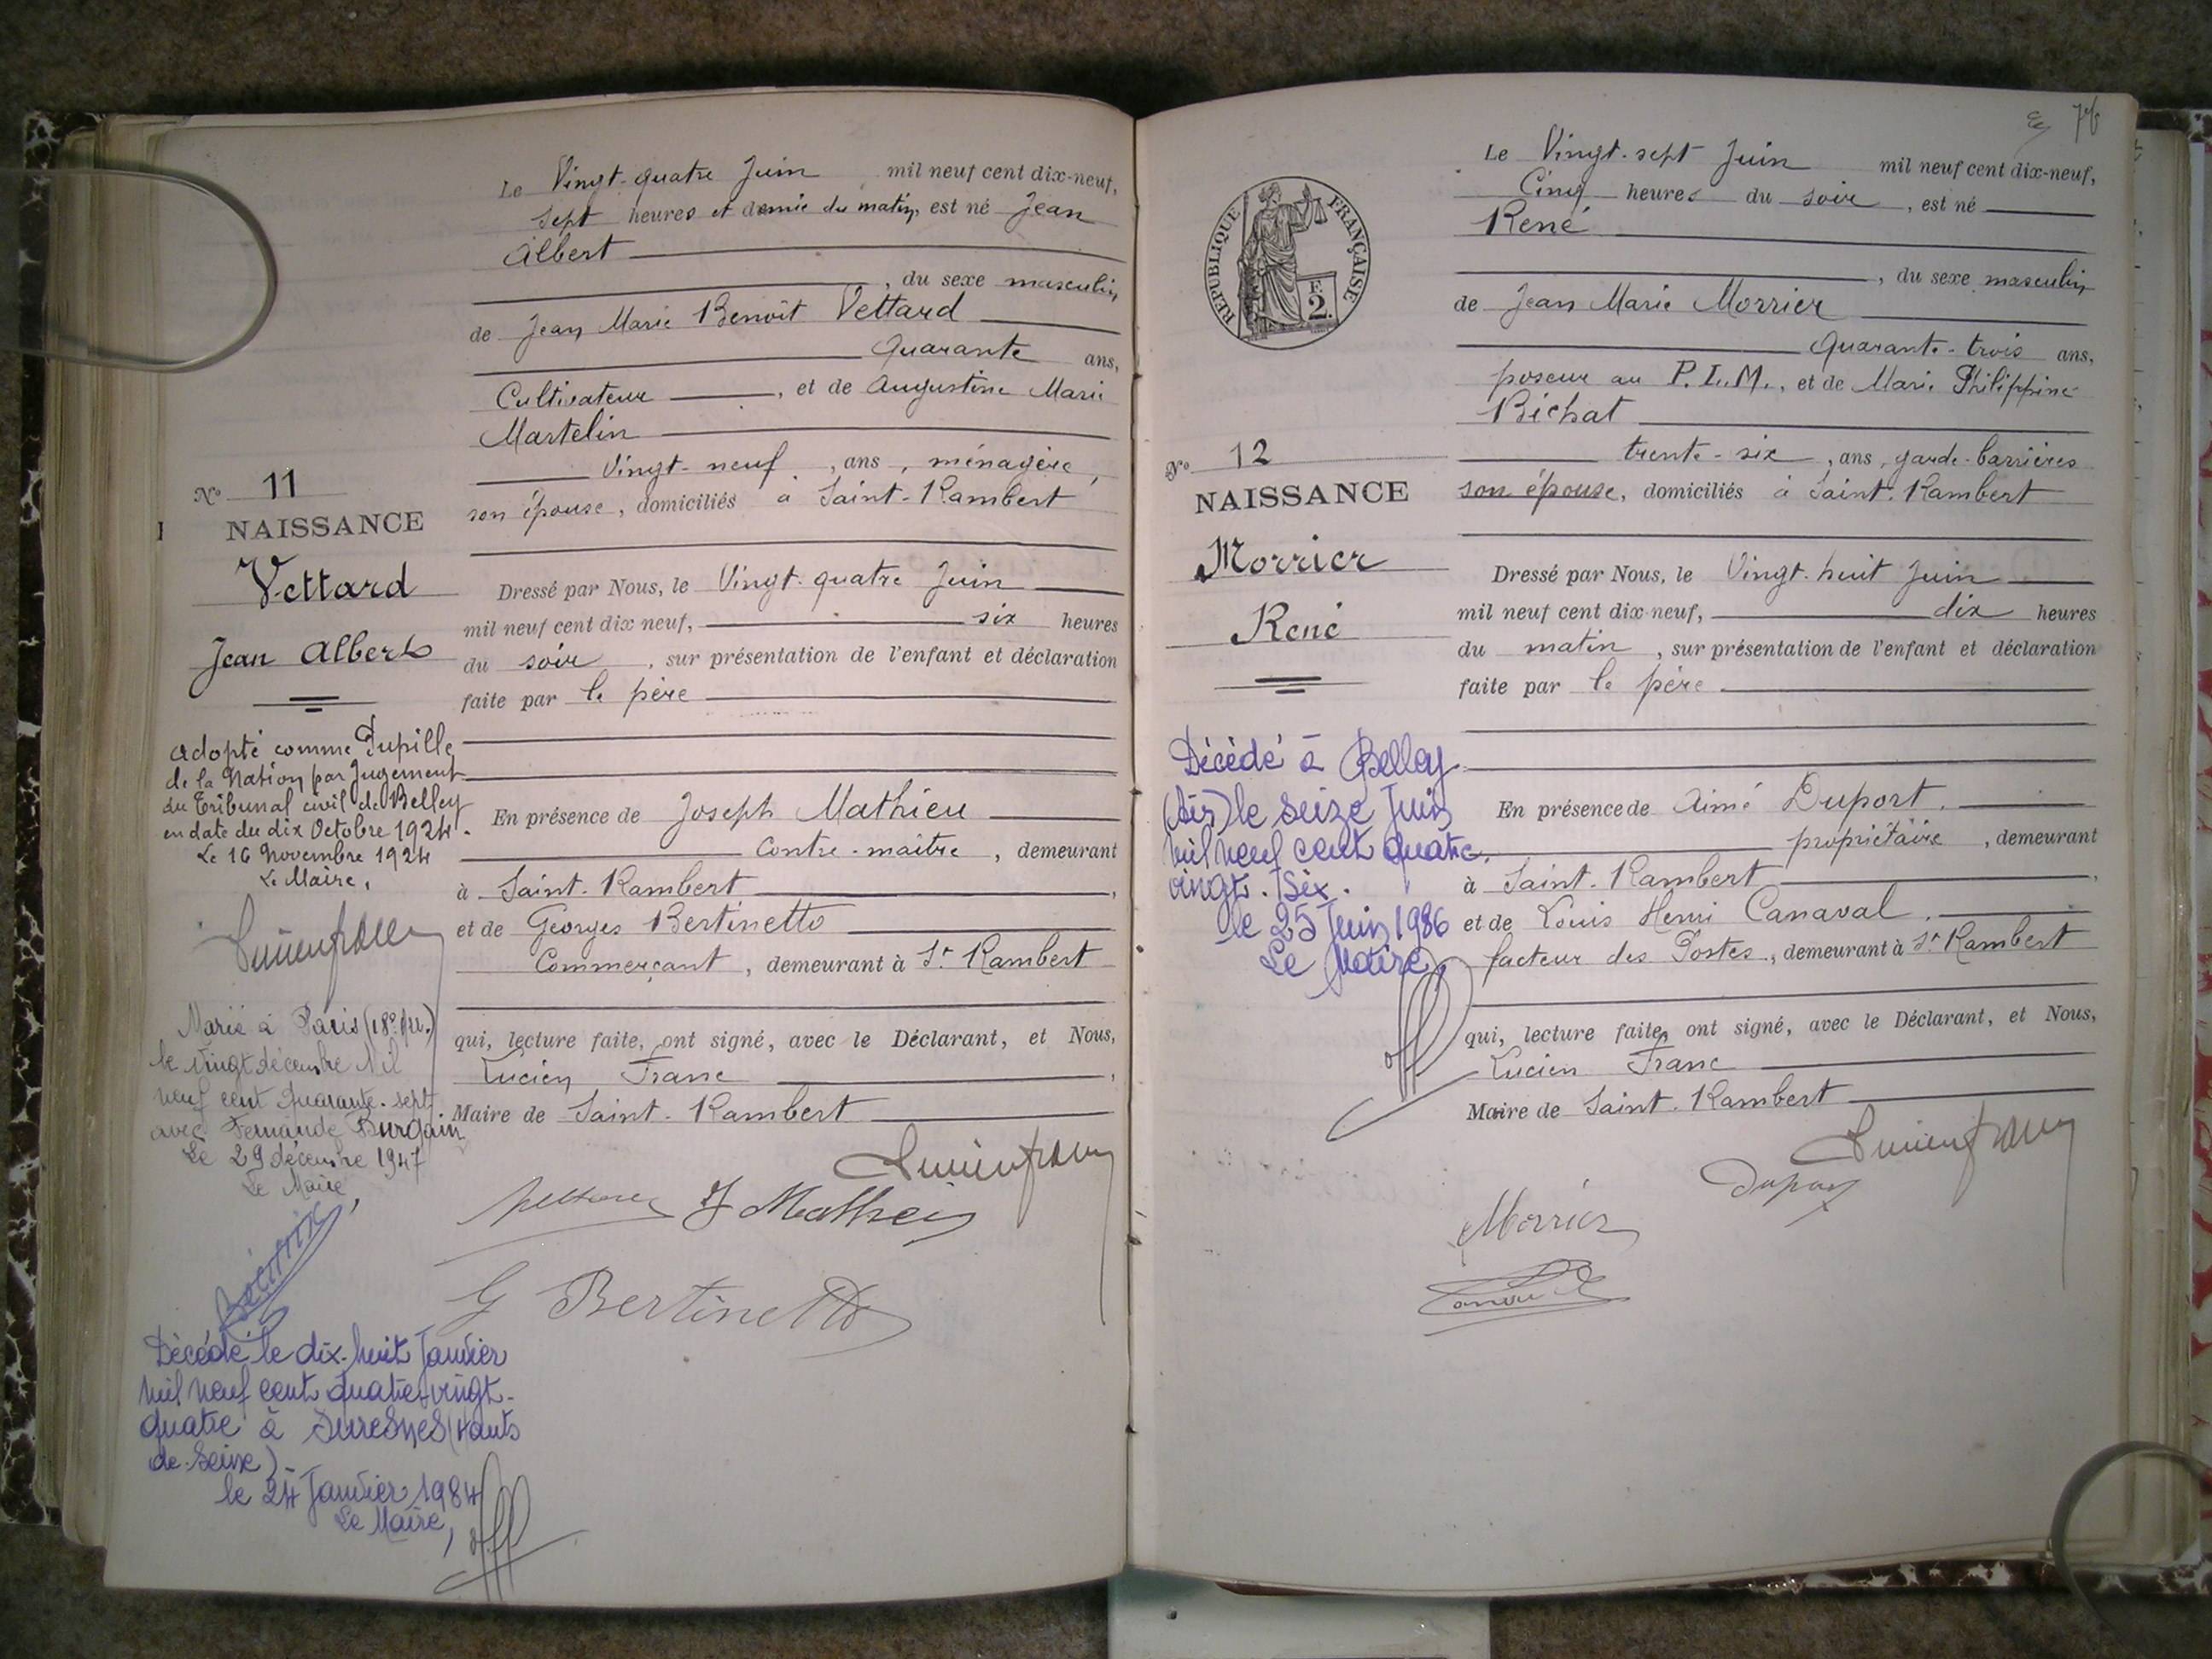 Le Vingt-quatre Juin mil neuf cent dix-neuf,
sept heures et demie du matin, est né Jean
Albert
, du sexe masculin
de Jean Marie Benoît Vettard
Quarante ans,
Cultivateur , et de Augustine Marie
Martelin
Vingt-neuf , ans , ménagère ,
son épouse , domiciliés à Saint-Rambert
Dressé par Nous, le Vingt-quatre Juin
mil neuf cent dix neuf, six heures
du soir , sur présentation de l'enfant et déclaration
faite par le père
En présence de Joseph Mathieu
Contre-maître , demeurant
à Saint-Rambert ,
et de Georges Bertinetto
Commerçant , demeurant à St Rambert
qui, lecture faite, ont signé, avec le Déclarant, et Nous,
Lucien Franc ,
Maire de Saint-Rambert
J Mathieu
G Bertinetto
No 11
NAISSANCE
Vettard
Jean Albert
Adopté comme Pupille
de la Nation par Jugement
du Tribunal civil de Belley
en date du dix Octobre 1924.
Le 16 Novembre 1924
Le Maire,
Marié à Paris (18e arr.)
le vingt décembre Mil
neuf cent quarante-sept
avec Fernande Burgain.
Le 29 décembre 1947
Le Maire,
Décédé le dix-huit Janvier
mil neuf cent quatre-vingt-
quatre à Suresnes (Hauts
de-Seine)-
le 24 Janvier 1984
Le Maire,
76
Le Vingt-sept Juin mil neuf cent dix-neuf,
Cinq heures du soir , est né
René
, du sexe masculin
de Jean Marie Morrier
Quarante-trois ans,
poseur au P.L.M., et de Marie Philippine
Bichat
trente-six , ans, garde-barrières
son épouse, domiciliés à Saint-Rambert
Dressé par Nous, le Vingt-huit Juin
mil neuf cent dix-neuf, dix heures
du matin , sur présentation de l'enfant et déclaration
faite par le père
En présence de Aimé Duport.
propriétaire , demeurant
à Saint-Rambert ,
et de Louis Henri Canaval.
facteur des Postes, demeurant à St Rambert
qui, lecture faite, ont signé, avec le Déclarant, et Nous,
Lucien Franc
Maire de Saint-Rambert
Duport
Morrier
RÉPUBLIQUE FRANÇAISE
F.
2.
No 12
NAISSANCE
Morrier
René
Décédé à Belley
(Ain) le seize Juin
mil neuf cent quatre.
vingt-six.
le 25 Juin 1986
Le Maire,